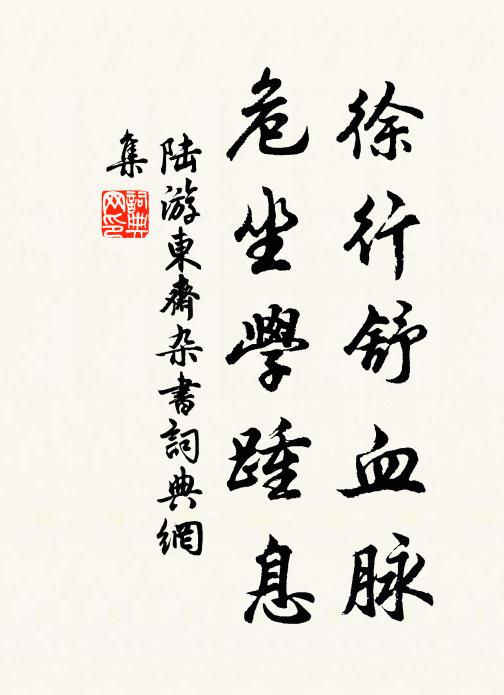 徐行舒血脉
危坐學踵息
陆游東齋杂書詞典網
集
詞典
网印